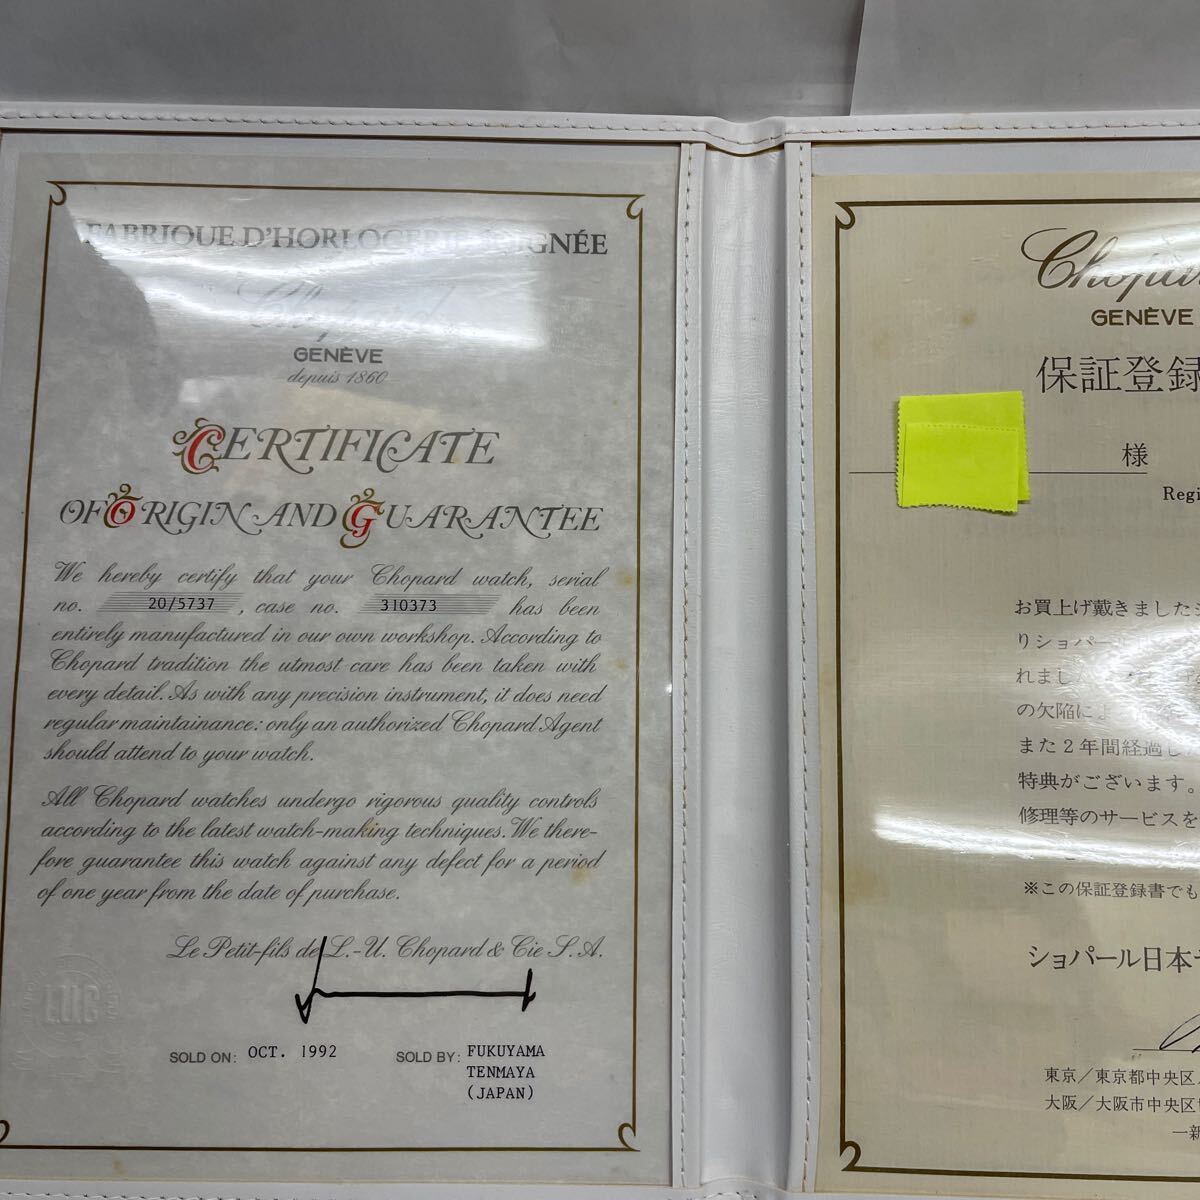 FABRIQUE D'HORLOGERIE SOIGNÉE
Chopard
GENÈVE
depuis 1860
CERTIFICATE
OF ORIGIN AND GUARANTEE
We hereby certify that your Chopard watch, serial
no. 20/5737, case no. 310373 has been
entirely manufactured in our own workshop. According to
Chopard tradition the utmost care has been taken with
every detail. As with any precision instrument, it does need
regular maintainance: only an authorized Chopard Agent
should attend to your watch.
All Chopard watches undergo rigorous quality controls
according to the latest watch-making techniques. We there-
fore guarantee this watch against any defect for a period
of one year from the date of purchase.
Le Petit-fils de L.-U. Chopard & Cie S.A.
L.U.C
SOLD ON: OCT. 1992
SOLD BY: FUKUYAMA
TENMAYA
(JAPAN)
Chopar
GENÈVE
保証登録
様
Regi
お買上げ戴きました
りショパー
れました
の欠陥によ
また2年間経過し
特典がございます。
修理等のサービスを
※この保証登録書でも
ショパール日本
東京/東京都中央区
大阪/大阪市中央区
一新